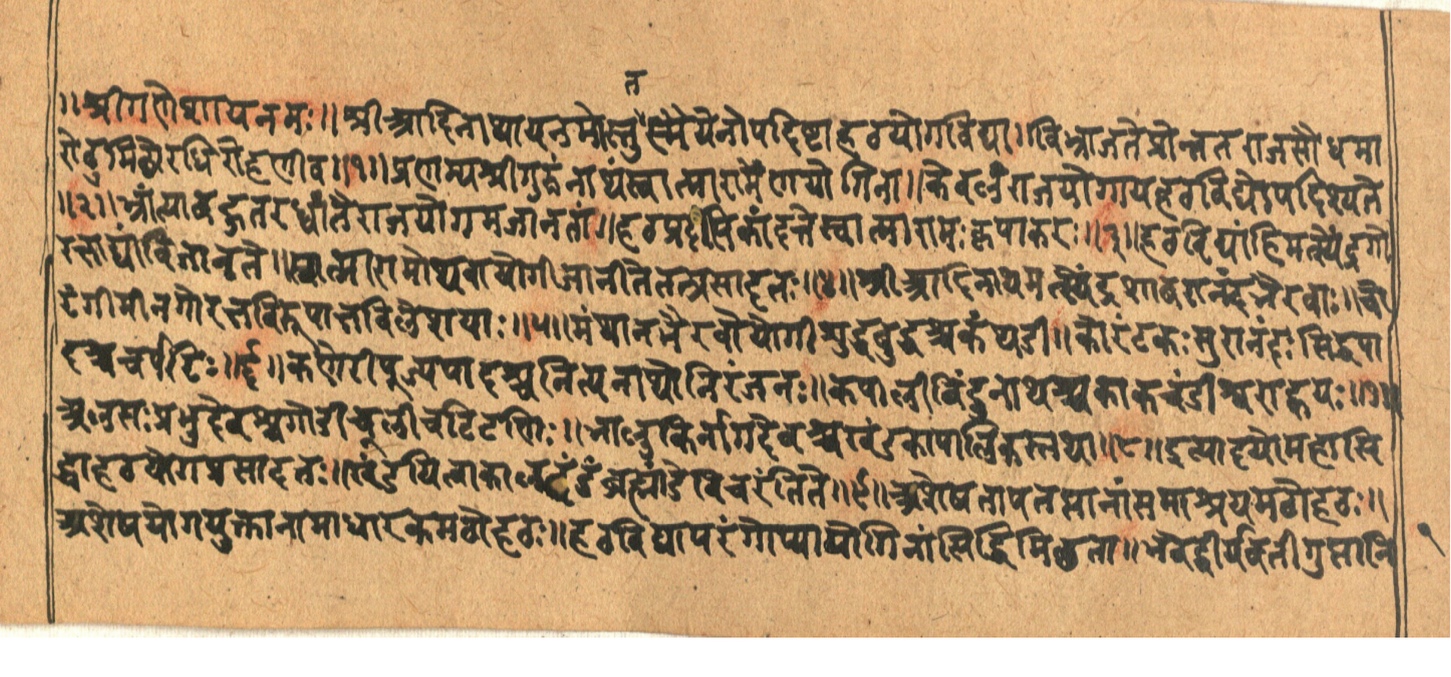 त
॥श्रीगणेशायनमः॥श्रीआदिनाथायनमोस्तुस्मैयेनोपदिष्टाहठयोगविद्या।विभ्राजतेप्रोन्नतराजसौधमा
रोढुमिछोरधिरोहणीव॥१॥प्रणम्यश्रीगुरुंनाथंस्वात्मारामेणयोगिना॥केवलंराजयोगायहठविद्योपदिश्यते
॥२॥भ्रांत्याबहुतरध्वांतेराजयोगमजानतां॥हठप्रदीपिकांदत्तेस्वात्मारामःकृपाकरः॥३॥हठविद्यांहिमत्स्येंद्रगो
रक्षाद्यांविजानते॥स्वात्मारामोथवायोगीजानीतेतत्प्रसादतः॥४॥श्रीआदिनाथमत्स्येंद्रशाबरानंदभैरवाः॥चौ
रंगीमीनगोरक्षविरूपाक्षबिलेशयाः॥५॥मंथानभैरवोयोगीशुद्धबुद्धश्चकंथडी॥कोरंटकःसुरानंदःसिद्धपा
दश्चचर्पटिः॥६॥कणेरीपूज्यपादश्चनित्यनाथोनिरंजनः॥कपालीबिंदुनाथश्चकाकचंडीश्वराह्वयः॥७॥
अल्लसःप्रभुदेवश्चगोडीचूलीचटिंटणिः॥भालुकिर्नागदेवश्चखंडकापालिकस्तथा॥८॥इत्यादयोमहासि
द्धाहठयोगप्रसादतः॥खंडयित्वाकालदंडंब्रह्मांडेविचरंतिते॥९॥अशेषतापतप्तानांसमाश्रयमठोहठः॥
अशेषयोगयुक्तानामाधारकमठोहठः॥हठविद्यापरंगोप्यायोगिनांसिद्धिमिछता॥भवेद्वीर्यवतीगुप्तानि